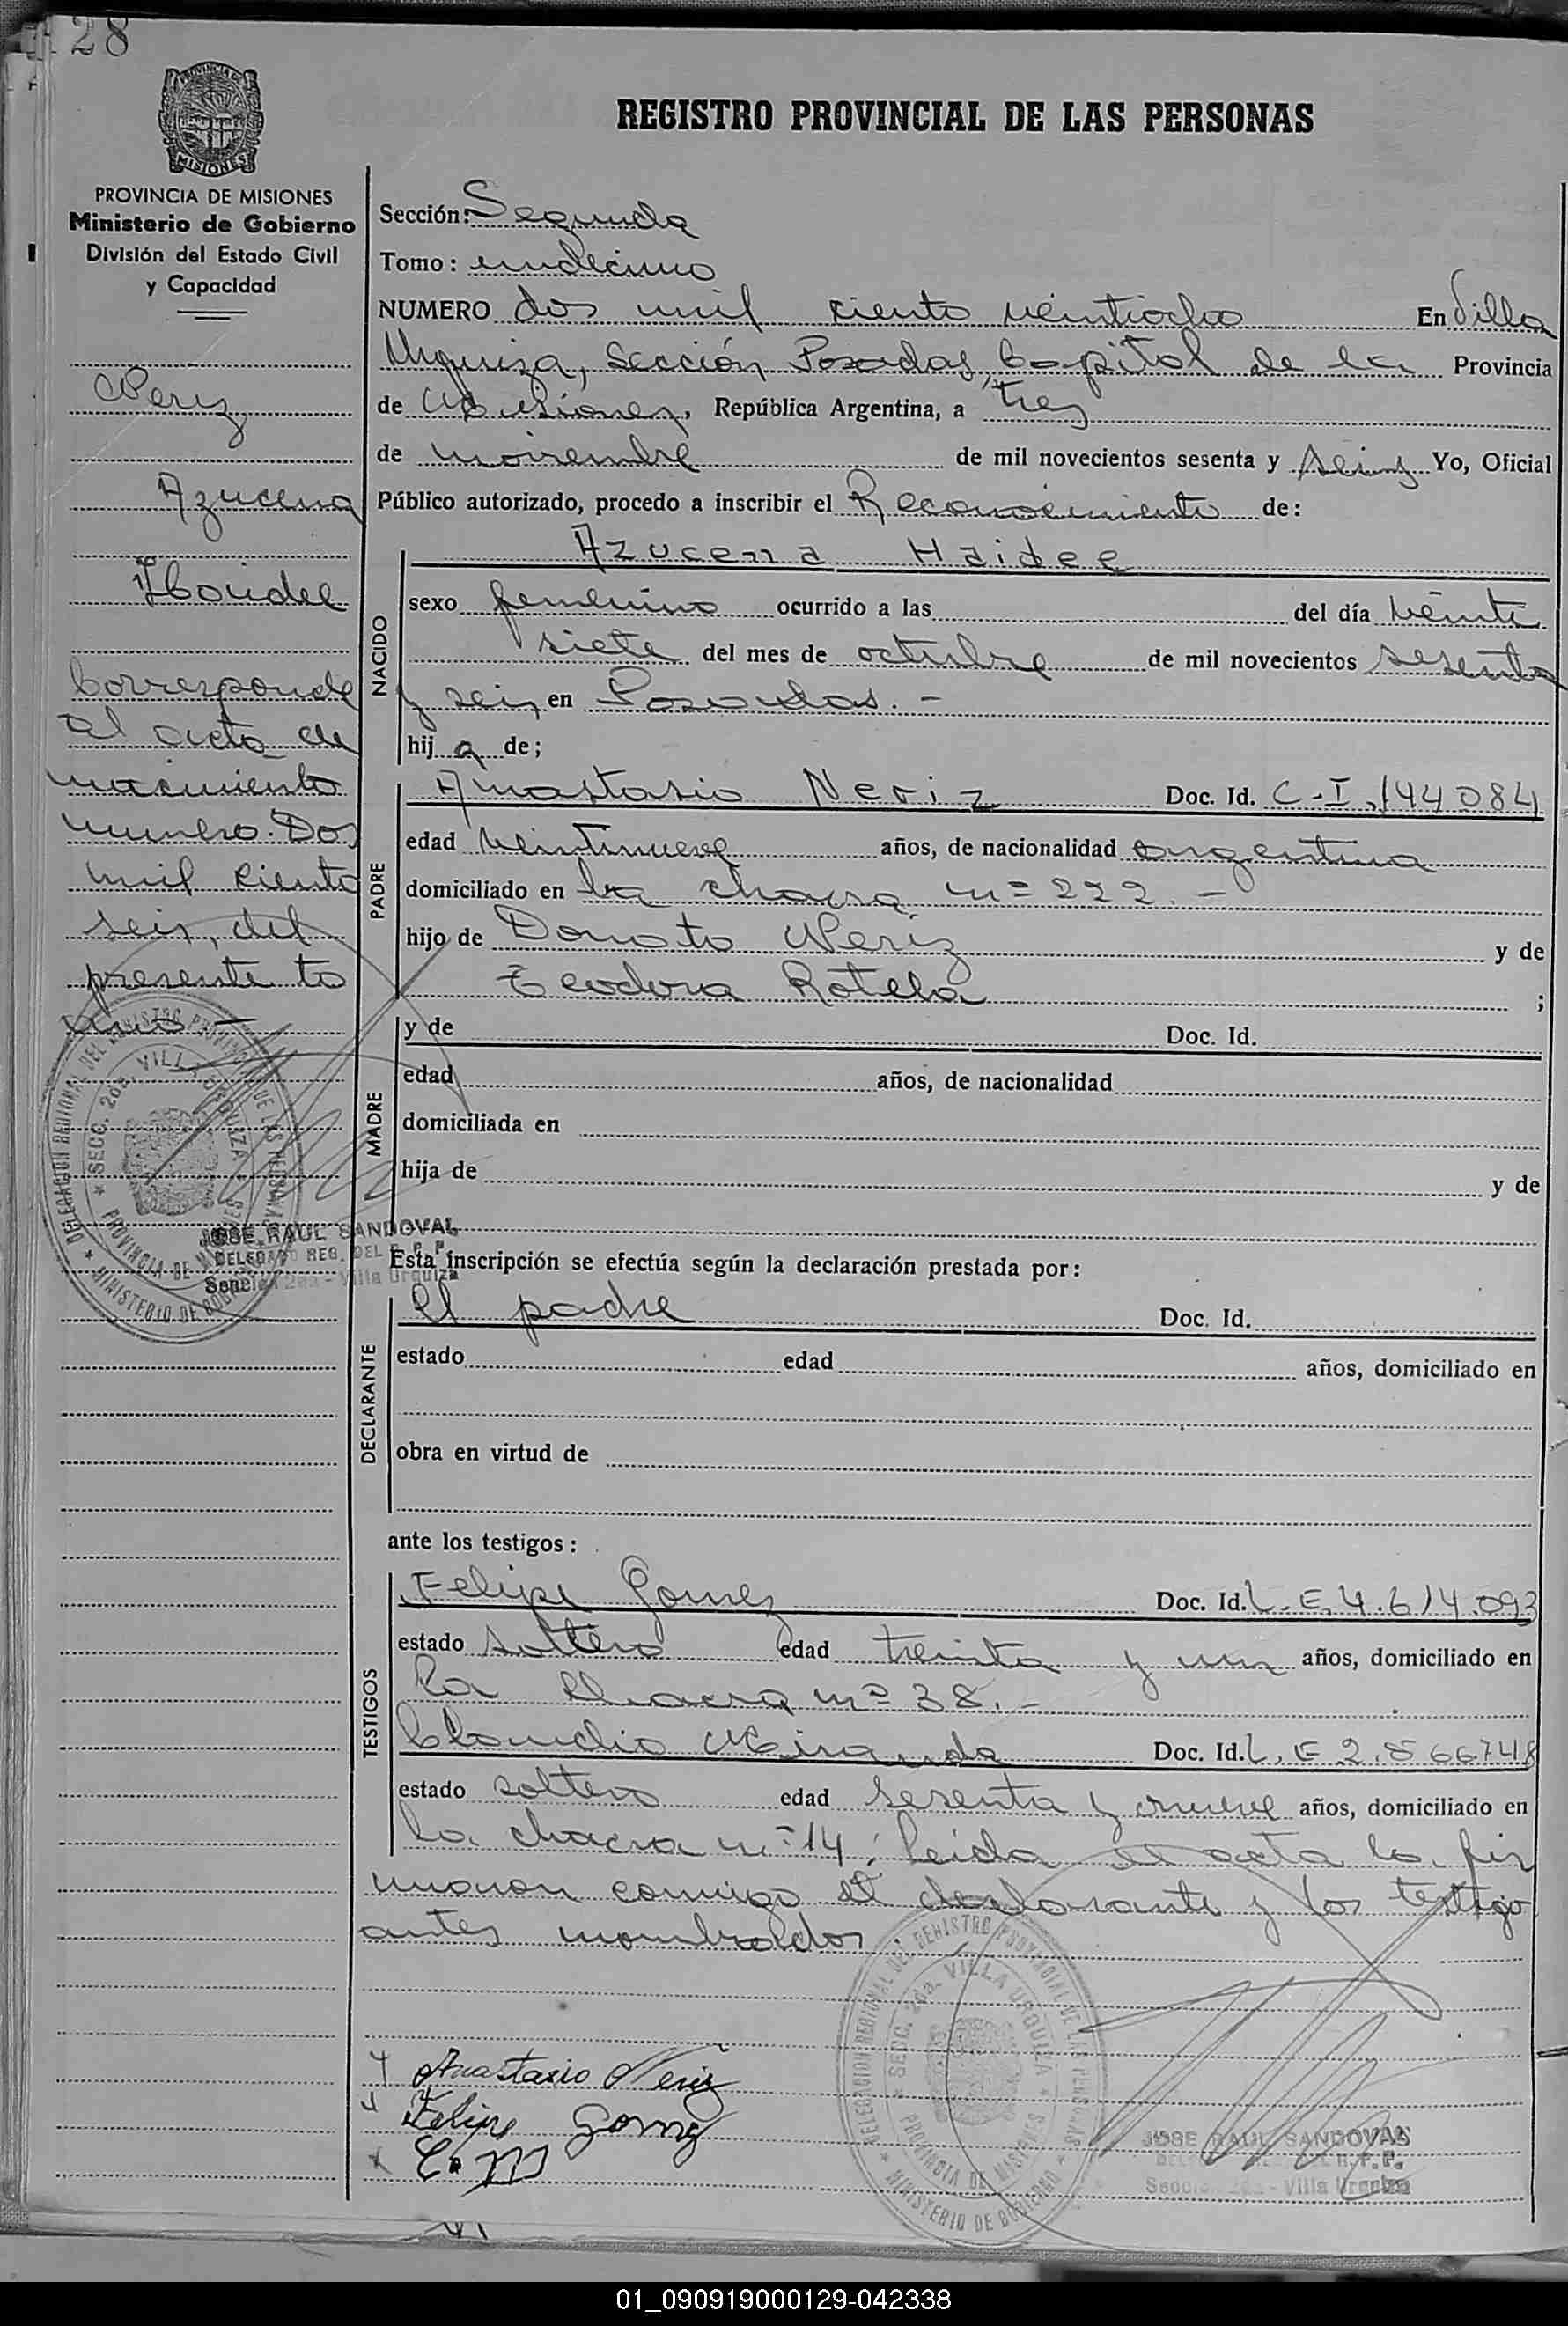 28
PROVINCIA DE
MISIONES
PROVINCIA DE MISIONES
Ministerio de Gobierno
División del Estado Civil
y Capacidad
Neriz
Azucena
Haidee
Corresponde
al acta de
nacimiento
numero Dos
mil ciento
seis, del
presente to
mo -
DELEGACION REGIONAL DEL REGISTRO PROVINCIAL DE LAS PERSONAS
SECC. 2da. VILLA URQUIZA
PROVINCIA DE MISIONES
MINISTERIO DE GOBIERNO
JOSE RAUL SANDOVAL
DELEGADO REG. DEL R. P. P.
Sección 2da - Villa Urquiza
REGISTRO PROVINCIAL DE LAS PERSONAS
Sección: Segunda
Tomo: undecimo
NUMERO dos mil ciento veintiocho En Villa
Urquiza, Sección Posadas, Capital de la Provincia
de Misiones, República Argentina, a tres
de noviembre de mil novecientos sesenta y seis Yo, Oficial
Público autorizado, procedo a inscribir el Reconocimiento de:
NACIDO
Azucena Haidee
sexo femenino ocurrido a las del día veinti
siete del mes de octubre de mil novecientos sesenta
y seis en Posadas. -
hij a de;
PADRE
Anastasio Neriz Doc. Id. C.I. 144084
edad veintinueve años, de nacionalidad argentina
domiciliado en la chacra nº 222. -
hijo de Donato Neriz y de
Teodora Rotela ;
MADRE
y de Doc. Id.
edad años, de nacionalidad
domiciliada en
hija de y de
Esta inscripción se efectúa según la declaración prestada por:
DECLARANTE
el padre Doc. Id.
estado edad años, domiciliado en
obra en virtud de
ante los testigos:
TESTIGOS
Felipe Gomez Doc. Id. L.E. 4.614.093
estado soltero edad treinta y un años, domiciliado en
la chacra nº 38. -
Claudio Miranda Doc. Id. L.E 2.566748
estado soltero edad sesenta y nueve años, domiciliado en
la chacra nº 14; leida el acta la fir
maron conmigo el declarante y los testigo
antes nombrados.
Anastasio Neriz
Felipe Gomez
C. M
DELEGACION REGIONAL DEL REGISTRO PROVINCIAL DE LAS PERSONAS
SECC. 2da. VILLA URQUIZA
PROVINCIA DE MISIONES
MINISTERIO DE GOBIERNO
JOSE RAUL SANDOVAL
DEL R. P. P.
Sección 2da - Villa Urquiza
01_090919000129-042338